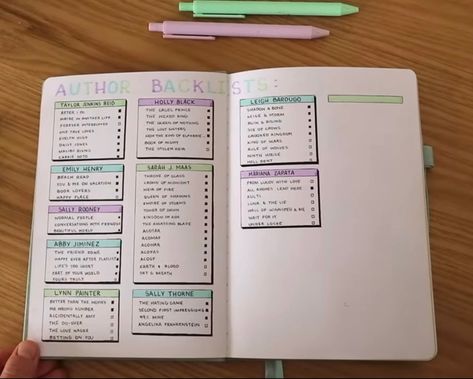 AUTHOR BACKLISTS:
TAYLOR JENKINS REID
AFTER I DO
MAYBE IN ANOTHER LIFE
FOREVER INTERRUPTED
ONE TRUE LOVES
EVELYN HUGO
DAISY JONES
MALIBU RISING
CARRIE SOTO
EMILY HENRY
BEACH READ
YOU & ME ON VACATION
BOOK LOVERS
HAPPY PLACE
SALLY ROONEY
NORMAL PEOPLE
CONVERSATIONS WITH FRIENDS
BEAUTIFUL WORLD
ABBY JIMINEZ
THE FRIEND ZONE
HAPPY EVER AFTER PLAYLIST
LIFE'S TOO SHORT
PART OF YOUR WORLD
YOURS TRULY
LYNN PAINTER
BETTER THAN THE MOVIES
MR WRONG NUMBER
ACCIDENTALLY AMY
THE DO-OVER
THE LOVE WAGER
BETTING ON YOU
HOLLY BLACK
THE CRUEL PRINCE
THE WICKED KING
THE QUEEN OF NOTHING
THE LOST SISTERS
HOW THE KING OF ELFHAME
BOOK OF NIGHT
THE STOLEN HEIR
SARAH J. MAAS
THRONE OF GLASS
CROWN OF MIDNIGHT
HEIR OF FIRE
QUEEN OF SHADOWS
EMPIRE OF STORMS
TOWER OF DAWN
KINGDOM OF ASH
THE ASSASSIN'S BLADE
ACOTAR
ACOMAF
ACOWAR
ACOFAS
ACOSF
EARTH & BLOOD
SKY & BREATH
SALLY THORNE
THE HATING GAME
SECOND FIRST IMPRESSIONS
99% MINE
ANGELIKA FRANKENSTEIN
LEIGH BARDUGO
SHADOW & BONE
SIEGE & STORM
RUIN & RISING
SIX OF CROWS
CROOKED KINGDOM
KING OF SCARS
RULE OF WOLVES
NINTH HOUSE
HELL BENT
MARIANA ZAPATA
FROM LUKOV WITH LOVE
ALL RHODES LEAD HERE
KULTI
LUNA & THE LIE
WALL OF WINNIPEG & ME
WAIT FOR IT
UNDER LOCKE